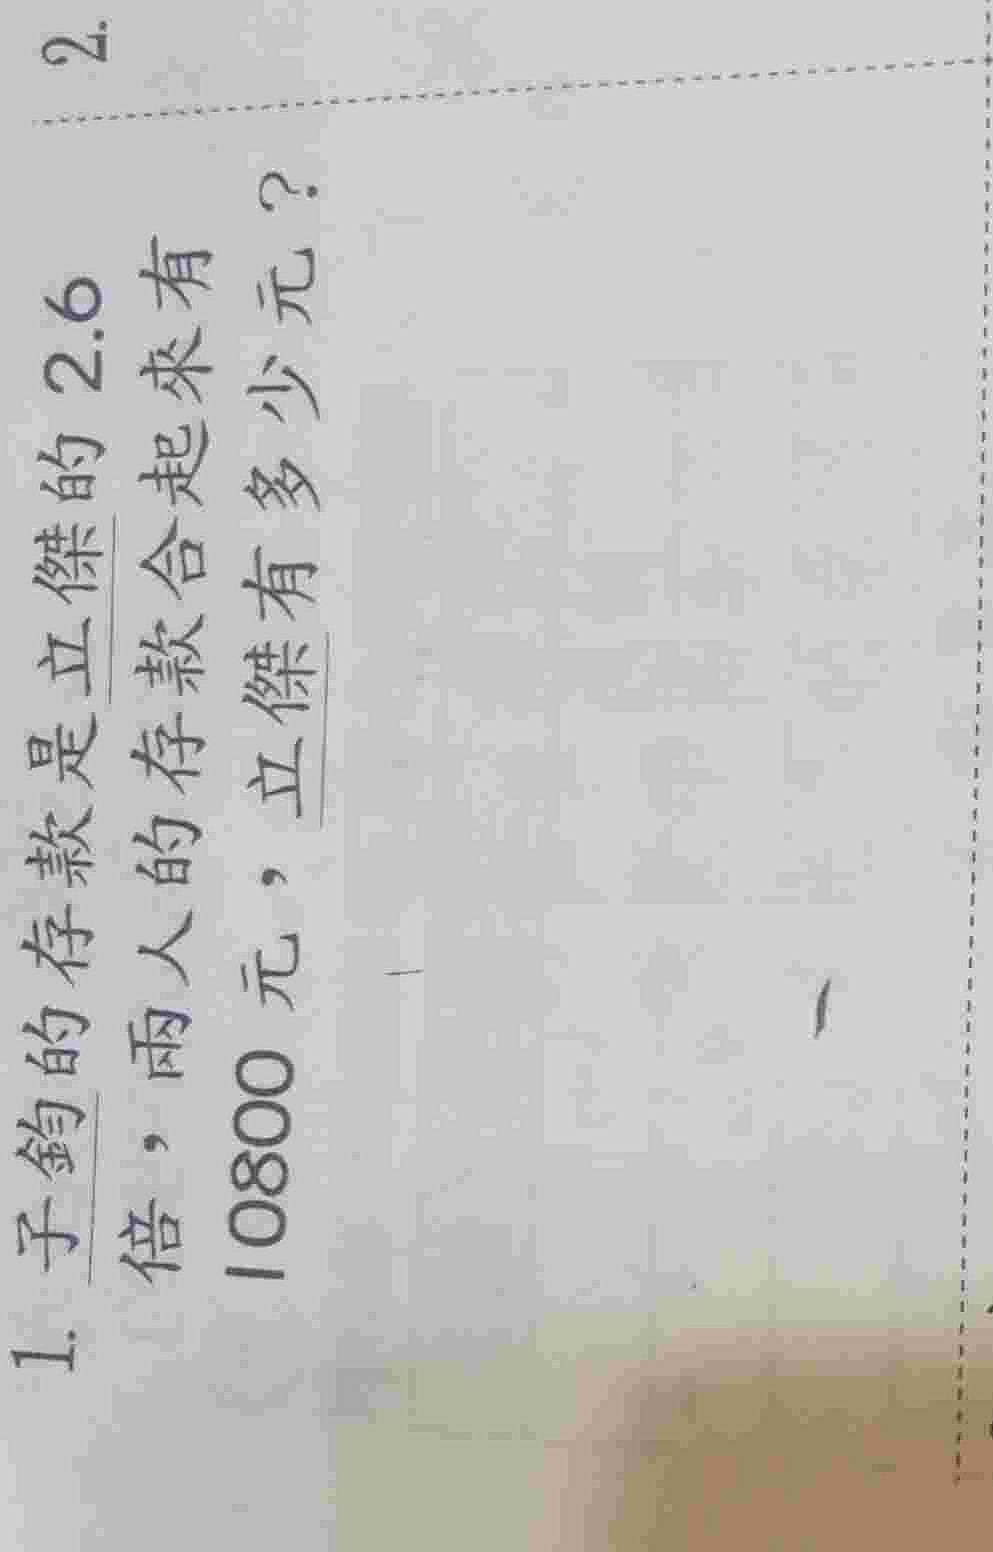 1. 子鈞的存款是立傑的 2.6
倍，兩人的存款合起來有
10800 元，立傑有多少元？
2.